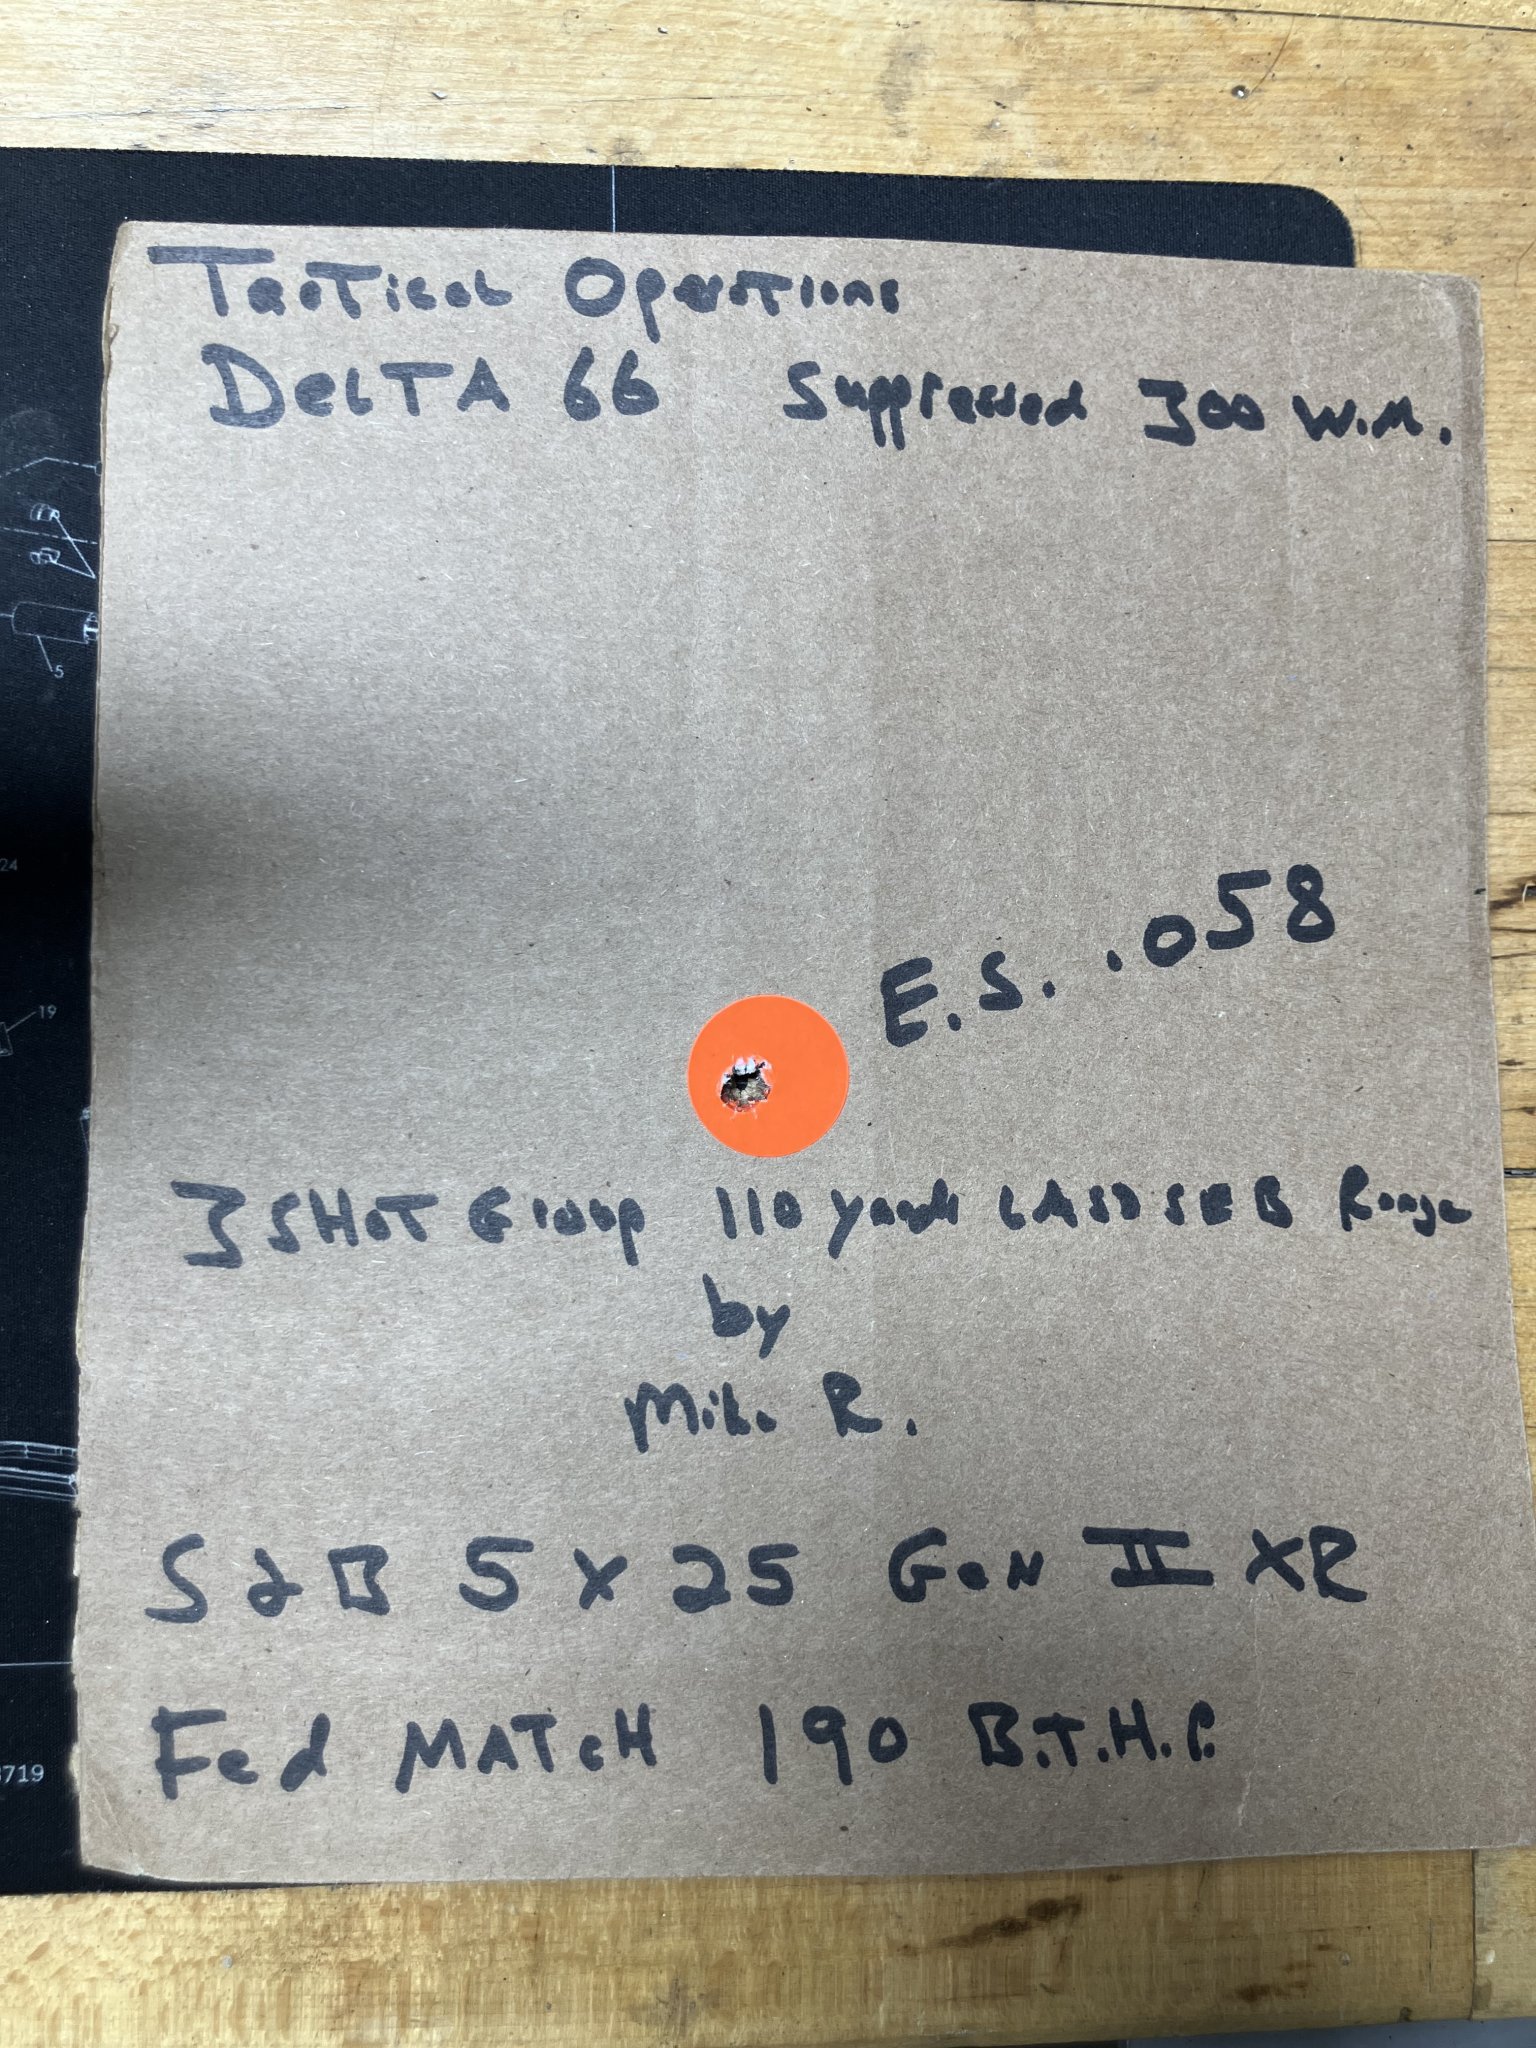 Tactical Operations
DelTA 66 Suppressed 300 W.M.
E.S. .058
3 SHOT Group 110 yards LASD SEB Range
by
Mike R.
S&B 5 x 25 Gen II XR
Fed MATCH 190 B.T.H.P.
5
24
19
3719